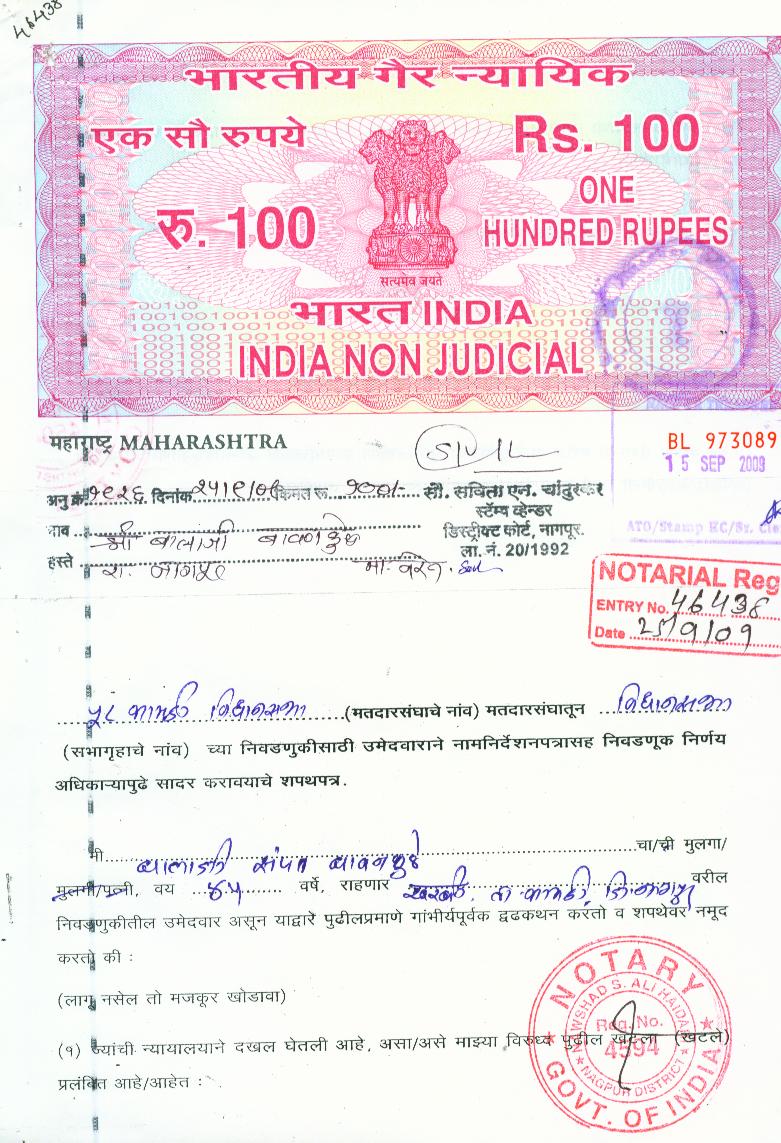 46438
भारतीय गैर न्यायिक
एक सौ रुपये Rs. 100
रु. 100 ONE
HUNDRED RUPEES
सत्यमेव जयते
भारत INDIA
INDIA NON JUDICIAL
महाराष्ट्र MAHARASHTRA
BL 973089
15 SEP 2009
अनु क्रं १९२६ दिनांक २५/९/०९ किंमत रू. १००/- सौ. सविता एन. चांदुरकर
स्टॅम्प व्हेन्डर
नाव श्री बालाजी बावनकुळे डिस्ट्रीक्ट कोर्ट, नागपूर.
ला. नं. 20/1992
हस्ते रा. नागपूर
ATO/Stamp HC/Sr. Cle
NOTARIAL Reg
ENTRY No. 46438
Date 25/9/09
५८ कामठी विधानसभा (मतदारसंघाचे नांव) मतदारसंघातून विधानसभा
(सभागृहाचे नांव) च्या निवडणुकीसाठी उमेदवाराने नामनिर्देशनपत्रासह निवडणूक निर्णय
अधिकाऱ्यापुढे सादर करावयाचे शपथपत्र.
मी बालाजी संपत बावनकुळे चा/ची मुलगा/
मुलगी/पत्नी, वय ४५ वर्षे, राहणार ता कामठी जि नागपूर वरील
निवडणुकीतील उमेदवार असून याद्वारे पुढीलप्रमाणे गांभीर्यपूर्वक द्वढकथन करतो व शपथेवर नमूद
करतो की :
(लागू नसेल तो मजकूर खोडावा)
(१) ज्यांची न्यायालयाने दखल घेतली आहे, असा/असे माझ्या विरुध्द पुढील खटला (खटले)
प्रलंबित आहे/आहेत :
NOTARY
NOWSHAD S. ALI HAIDARI
Reg. No.
4594
NAGPUR DISTRICT
GOVT. OF INDIA